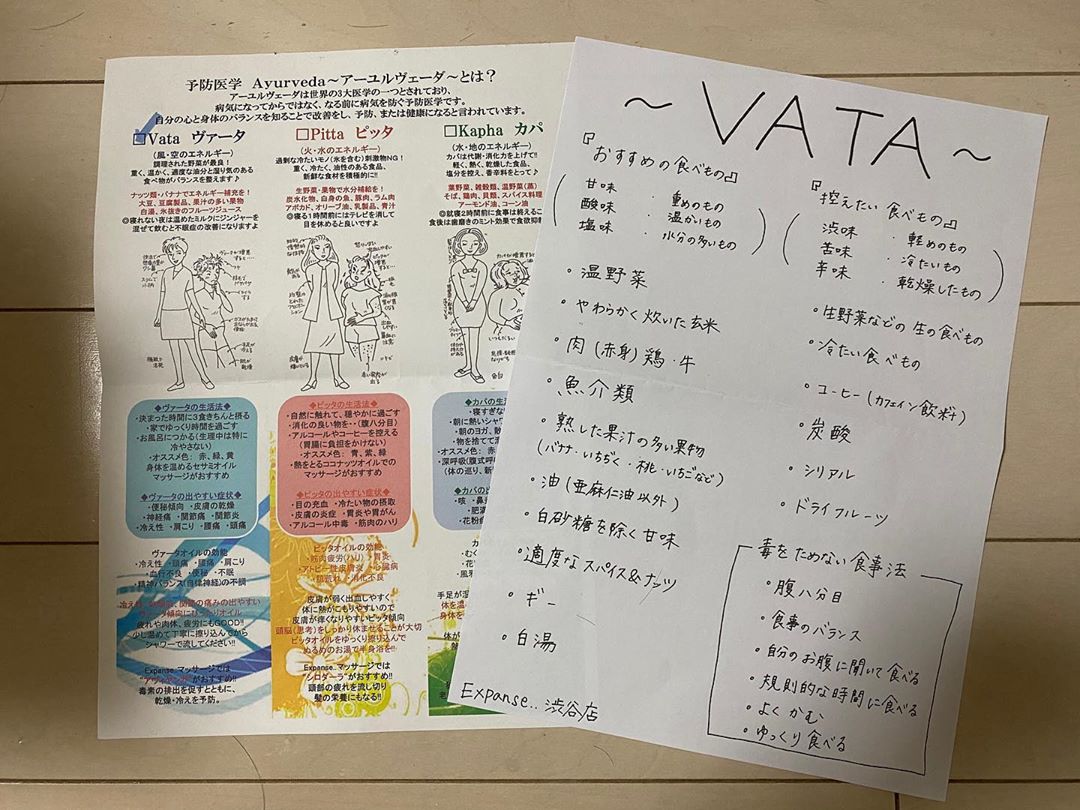 予防医学 Ayurveda～アーユルヴェーダ～とは？
アーユルヴェーダは世界の3大医学の一つとされており、
病気になってからではなく、なる前に病気を防ぐ予防医学です。
自分の心と身体のバランスを知ることで改善をし、予防、または健康になると言われています。
□Vata ヴァータ
(風・空のエネルギー)
調理された野菜が最良！
重く、温かく、適度な油分と湿り気のある
食べ物がバランスを整えます♪
ナッツ類・バナナでエネルギー補充を！
大豆、豆腐製品、果汁の多い果物
白湯、氷抜きのフルーツジュース
◎寝れない夜は温めたミルクにジンジャーを
混ぜて飲むと不眠症の改善になりますよ
◆ヴァータの生活法◆
・決まった時間に3食きちんと摂る
・家でゆっくり時間を過ごす
・お風呂につかる(生理中は特に
冷やさない)
・オススメ色： 赤、緑、黄
身体を温めるセサミオイル
マッサージがおすすめ
◆ヴァータの出やすい症状◆
・便秘傾向 ・皮膚の乾燥
・神経痛 ・関節痛 ・関節炎
・冷え性 ・肩こり ・腰痛 ・頭痛
ヴァータオイルの効能
・冷え性 ・頭痛 ・腰痛 ・肩こり
・血行不良 ・便秘 ・不眠
・精神バランス(自律神経)の不調
疲れや肉体、疲労にもGOOD!!
少し温めて丁寧に擦り込んでから
シャワーで流してください!!
Expanse..マッサージでは
がおすすめ!!
毒素の排出を促すとともに、
乾燥・冷えを予防。
□Pitta ピッタ
(火・水のエネルギー)
過剰な冷たいモノ(水を含む)刺激物NG！
重く、冷たく、油性のある食品、
新鮮な食材を積極的に!!
生野菜・果物で水分補給を！
炭水化物、白身の魚、豚肉、ラム肉
アボカド、オリーブ油、乳製品、青汁
◎寝る１時間前にはテレビを消して
目を休めると良いですよ
◆ピッタの生活法◆
・自然に触れて、穏やかに過ごす
・消化の良い物を・・(腹八分目)
・アルコールやコーヒーを控える
(胃腸に負担をかけない)
・オススメ色： 青、紫、緑
・熱をとるココナッツオイルでの
マッサージがおすすめ
◆ピッタの出やすい症状◆
・目の充血 ・冷たい物の摂取
・皮膚の炎症 ・胃炎や胃がん
・アルコール中毒 ・筋肉のハリ
ピッタオイルの効能
・筋肉疲労(ハリ) ・胃炎
・アトピー性皮膚炎 ・心臓病
・肌荒れ ・消化不良
皮膚が弱く出血しやすく、
体に熱がこもりやすいので
皮膚が痒くなりやすいピッタ傾向
頭脳(思考)をしっかり休ませることが大切
ピッタオイルをゆっくり擦り込んで
ぬるめのお湯で半身浴を!!
Expanse..マッサージでは
"シロダーラ"がおすすめ!!
頭部の疲れを流し切り
髪の栄養にもなる!!
□Kapha カパ
(水・地のエネルギー)
カパは代謝・消化力を上げて!!
軽く、熱く、乾燥した食品、
塩分を控え、香辛料をとって♪
葉野菜、雑穀類、温野菜(蒸)
そば、鶏肉、貝類、スパイス料理
アーモンド油、コーン油
◎就寝2時間前に食事は終えるこ
食後は歯磨きのミント効果で食欲抑
◆カパの生
・寝すぎな
・朝に熱いシャワ
・朝のヨガ、散
・物を捨てて
・オススメ色： 赤
・深呼吸(腹式呼
(体の巡り、新
◆カパの出
・咳 ・鼻
・肥満
・花粉
～VATA～
『おすすめの食べもの』
甘味 ・重めのもの
酸味 ・温かいもの
塩味 ・水分の多いもの
・温野菜
・やわらかく炊いた玄米
・肉(赤身)鶏・牛
・魚介類
・熟した果汁の多い果物
(バナナ・いちぢく・桃・いちごなど)
・油(亜麻仁油以外)
・白砂糖を除く甘味
・適度なスパイス&ナッツ
・ギー
・白湯
Expanse.. 渋谷店
『控えたい食べもの』
渋味 ・軽めのもの
苦味 ・冷たいもの
辛味 ・乾燥したもの
・生野菜などの生の食べもの
・冷たい食べもの
・コーヒー(カフェイン飲料)
・炭酸
・シリアル
・ドライフルーツ
毒をためない食事法
・腹八分目
・食事のバランス
・自分のお腹に聞いて食べる
・規則的な時間に食べる
・よくかむ
・ゆっくり食べる